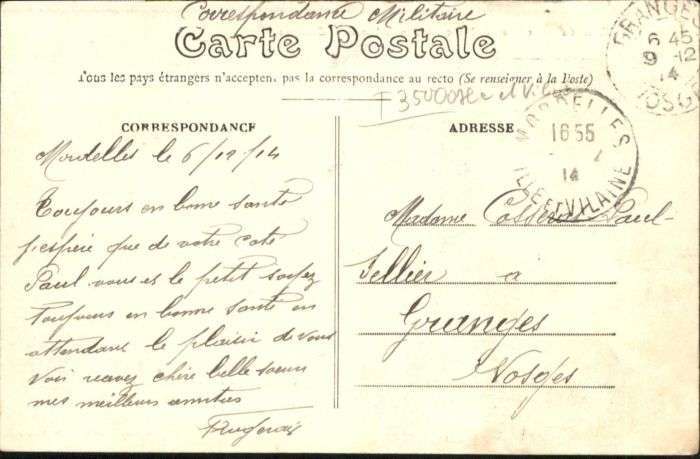 Correspondance Militaire
Carte Postale
Tous les pays étrangers n'acceptent pas la correspondance au recto (Se renseigner à la Poste)
GRANGES
6 45
9 - 12
14
VOSGES
35000
CORRESPONDANCE
ADRESSE
MORDELLES
16 55
14
ILLE ET VILAINE
Mordelles le 6/12/14
Toujours en bonne santé
j'espère que de votre coté
Paul vous et le petit soyez
toujours en bonne santé en
attendant le plaisir de vous
voir recevez chère belle soeur
mes meilleurs amitiés
Madame Paul
Tellier à
Granges
Vosges